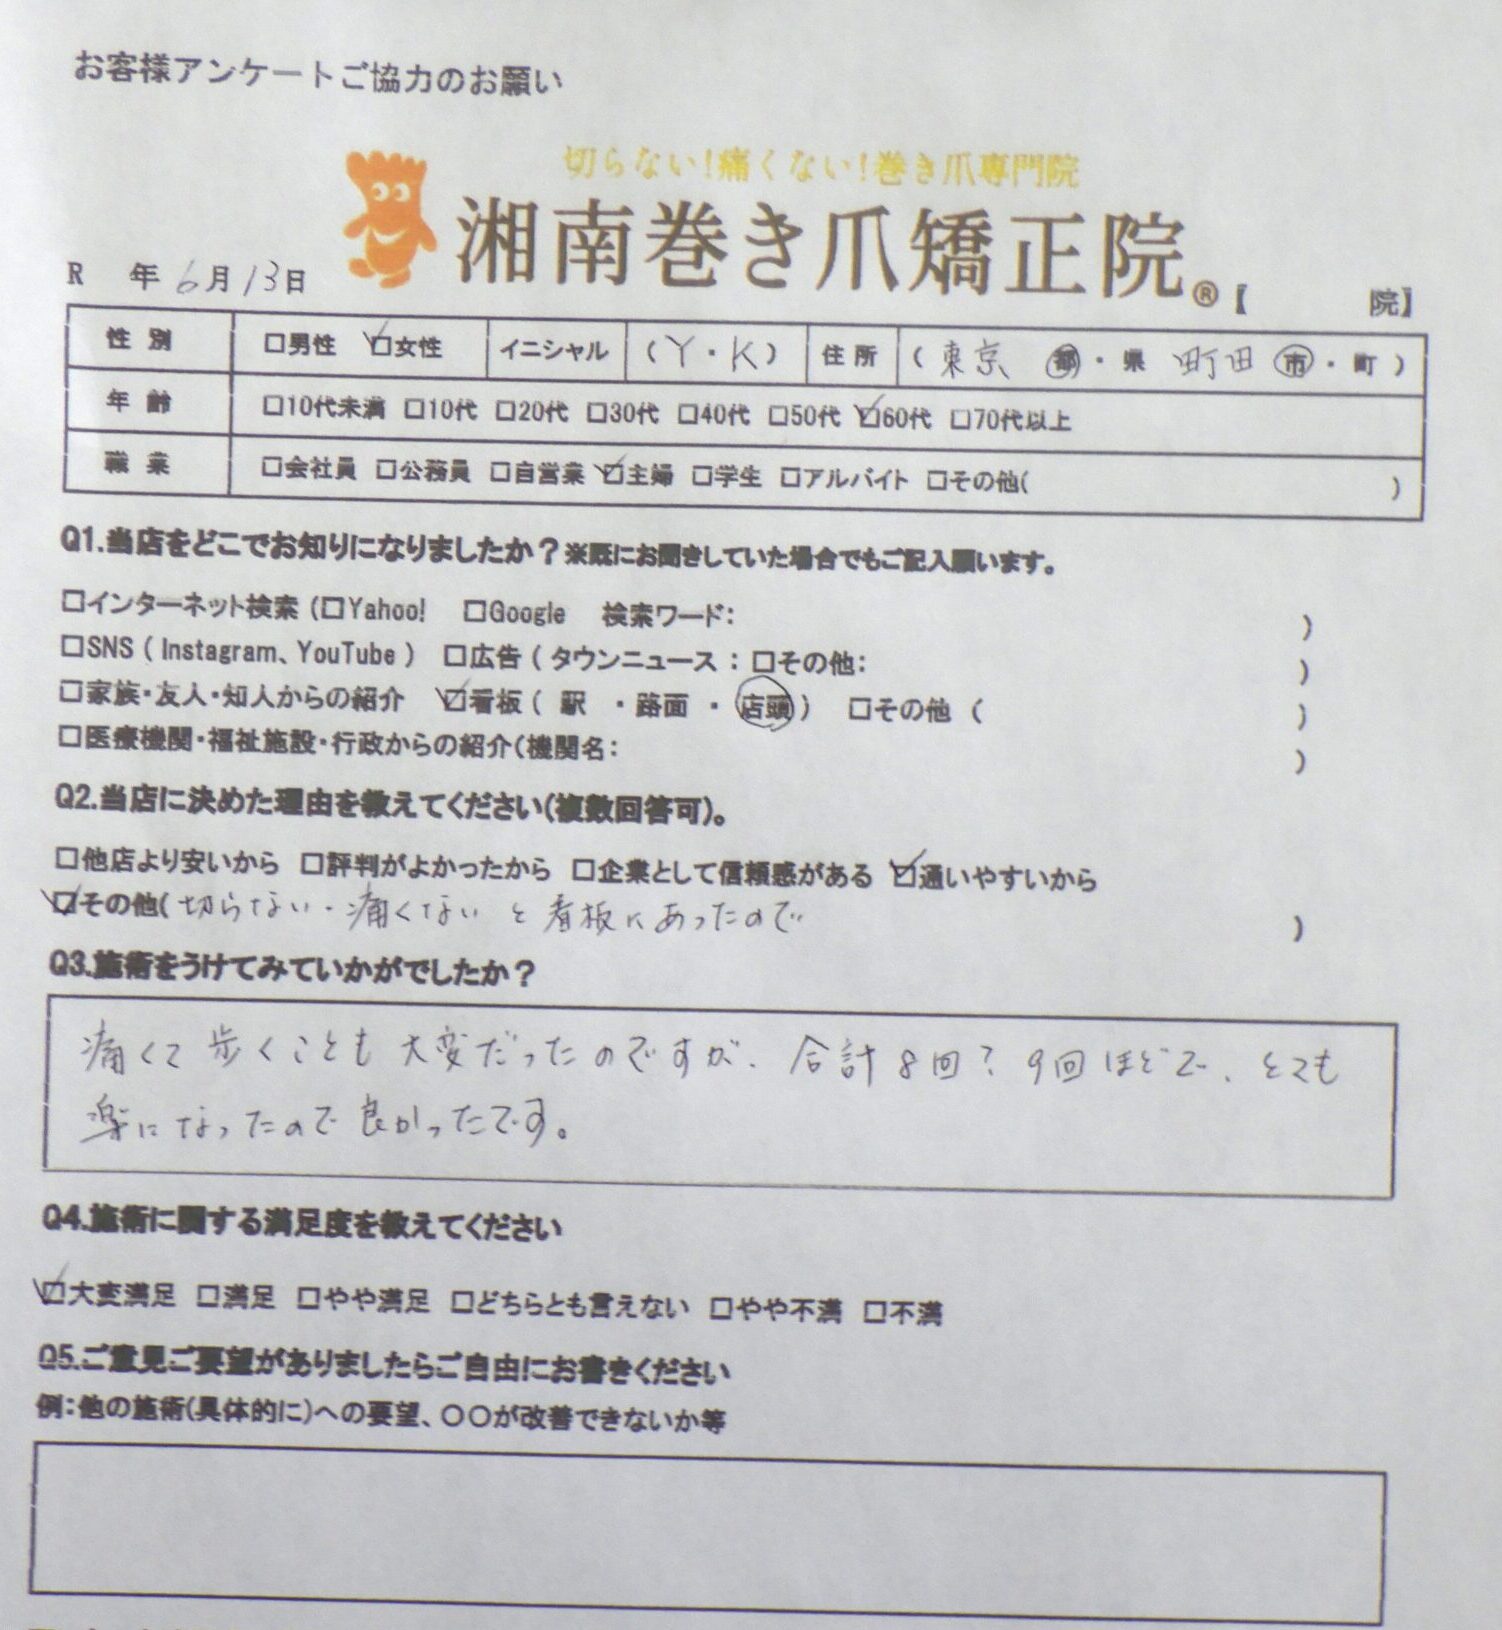 お客様アンケートご協力のお願い
切らない！痛くない！巻き爪専門院
湘南巻き爪矯正院®【 院】
R 年 6月 13日
性別 □男性 ☑女性 イニシャル (Y・K) 住所 (東京 都・県 町田 市・町)
年齢 □10代未満 □10代 □20代 □30代 □40代 □50代 ☑60代 □70代以上
職業 □会社員 □公務員 □自営業 ☑主婦 □学生 □アルバイト □その他( )
Q1.当店をどこでお知りになりましたか？※既にお聞きしていた場合でもご記入願います。
□インターネット検索 (□Yahoo! □Google 検索ワード: )
□SNS ( Instagram、YouTube ) □広告 ( タウンニュース : □その他: )
□家族・友人・知人からの紹介 ☑看板 ( 駅 ・路面 ・ 店頭 ) □その他 ( )
□医療機関・福祉施設・行政からの紹介(機関名: )
Q2.当店に決めた理由を教えてください(複数回答可)。
□他店より安いから □評判がよかったから □企業として信頼感がある ☑通いやすいから
☑その他( 切らない・痛くない と 看板にあったので )
Q3.施術をうけてみていかがでしたか？
痛くて 歩くことも 大変だったのですが、合計 8回? 9回ほどで、とても
楽になったので 良かったです。
Q4.施術に関する満足度を教えてください
☑大変満足 □満足 □やや満足 □どちらとも言えない □やや不満 □不満
Q5.ご意見ご要望がありましたらご自由にお書きください
例:他の施術(具体的に)への要望、〇〇が改善できないか等